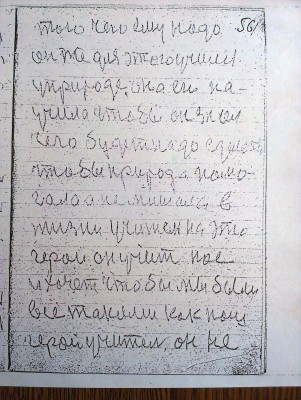 того чего ему надо 56
он же для этого учился
у природе, она ен на-
учила чтобы он знал
чего будет надо сделать
чтобы природа помо-
гала а не мешала в
жизни учител на это
герой он учит нас
и хочет чтобы мы были
все такими как наш
герой учител. он не